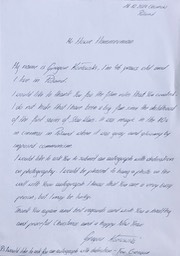 Poland
My name is Grzegorz Kosowski. I'm 46 years old and
I live in Poland.
I would like to thank you for the film and that you
I do not hide that I have been a big fan since the childhood
of the first parts of Star Wars. It was magic in the 80s
in cinemas in Poland when it was grey and gloomy by
communism.
I would like to ask you to submit an autograph with dedication
on photography. I would be pleased to hang a photo on the
wall with your autograph. I know that you are a very busy
person, but I may be lucky.
Thank you again and best regards and wish you a healthy
and peaceful Christmas and a Happy New Year
Grzegorz
I would like to ask for an autograph with dedication - "For Grzegorz